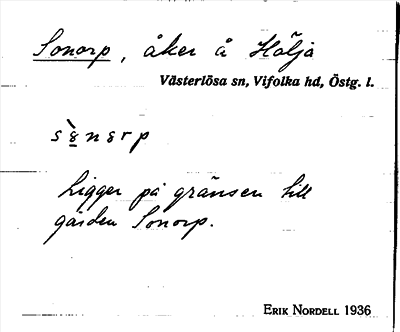 Sonorp, åker å Hålja
Västerlösa sn, Vifolka hd, Östg. l.
Ligger på gränsen till
gården Sonorp.
ERIK NORDELL 1936